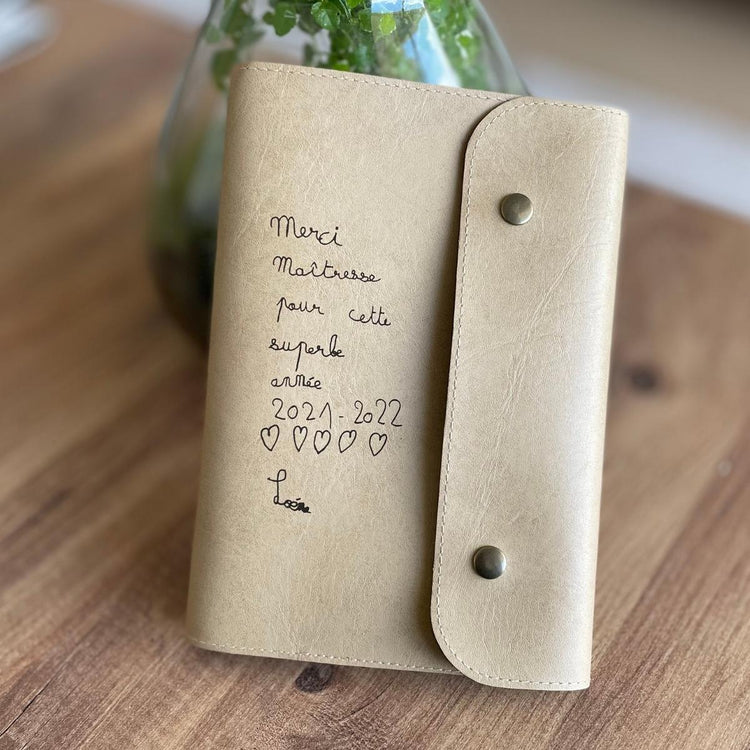 Merci
Maîtresse
pour cette
superbe
année
2021-2022